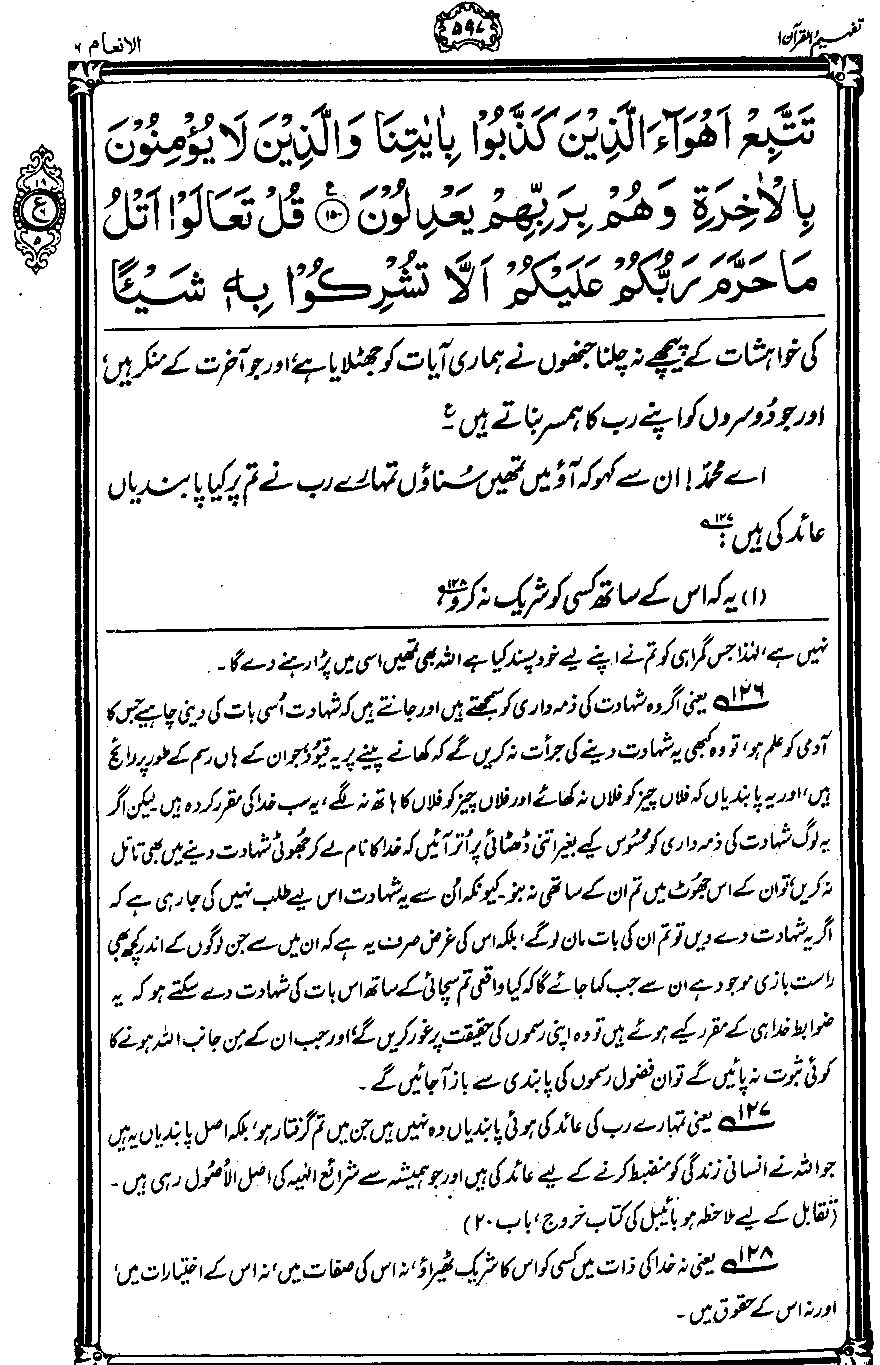 تفہیم القرآن ۱
۵۹۷
الانعام ۶
تَتَّبِعْ اَهْوَآءَ الَّذِيْنَ كَذَّبُوْا بِاٰيٰتِنَا وَالَّذِيْنَ لَا يُؤْمِنُوْنَ
بِالْاٰخِرَةِ وَهُمْ بِرَبِّهِمْ يَعْدِلُوْنَ ﴿۱۵۰﴾ ع قُلْ تَعَالَوْا اَتْلُ
مَا حَرَّمَ رَبُّكُمْ عَلَيْكُمْ اَلَّا تُشْرِكُوْا بِهٖ شَيْـًٔا
۱۹
ع
۵
کی خواہشات کے پیچھے نہ چلنا جنھوں نے ہماری آیات کو جھٹلایا ہے، اور جو آخرت کے منکر ہیں،
اور جو دُوسروں کو اپنے رب کا ہمسر بناتے ہیں۔ ع
اے محمدؐ! ان سے کہو کہ آؤ میں تمھیں سُناؤں تمہارے رب نے تم پر کیا پابندیاں
عائد کی ہیں ۱۲۷:
(۱) یہ کہ اس کے ساتھ کسی کو شریک نہ کرو ۱۲۸،
نہیں ہے، لہٰذا جس گمراہی کو تم نے اپنے لیے خود پسند کیا ہے اللہ بھی تمھیں اسی میں پڑا رہنے دے گا۔
۱۲۶ یعنی اگر وہ شہادت کی ذمہ داری کو سمجھتے ہیں اور جانتے ہیں کہ شہادت اُسی بات کی دینی چاہیے جس کا
آدمی کو علم ہو، تو وہ کبھی یہ شہادت دینے کی جرأت نہ کریں گے کہ کھانے پینے پر یہ قیود، جو ان کے ہاں رسم کے طور پر رائج
ہیں، اور یہ پابندیاں کہ فلاں چیز کو فلاں نہ کھائے اور فلاں چیز کو فلاں کا ہاتھ نہ لگے، یہ سب خدا کی مقرر کردہ ہیں۔ لیکن اگر
یہ لوگ شہادت کی ذمہ داری کو محسُوس کیے بغیر اتنی ڈھٹائی پر اُتر آئیں کہ خدا کا نام لے کر جھوٹی شہادت دینے میں بھی تامل
نہ کریں، تو ان کے اس جھُوٹ میں تم ان کے ساتھی نہ بنو۔ کیونکہ اُن سے یہ شہادت اس لیے طلب نہیں کی جا رہی ہے کہ
اگر یہ شہادت دے دیں تو تم ان کی بات مان لو گے، بلکہ اس کی غرض صرف یہ ہے کہ ان میں سے جن لوگوں کے اندر کچھ بھی
راست بازی موجود ہے ان سے جب کہا جائے گا کہ کیا واقعی تم سچائی کے ساتھ اس بات کی شہادت دے سکتے ہو کہ یہ
ضوابط خدا ہی کے مقرر کیے ہوئے ہیں تو وہ اپنی رسموں کی حقیقت پر غور کریں گے، اور جب ان کے مِن جانب اللہ ہونے کا
کوئی ثبوت نہ پائیں گے تو ان فضول رسموں کی پابندی سے باز آجائیں گے۔
۱۲۷ یعنی تمہارے رب کی عائد کی ہوئی پابندیاں وہ نہیں ہیں جن میں تم گرفتار ہو، بلکہ اصل پابندیاں یہ ہیں
جو اللہ نے انسانی زندگی کو منضبط کرنے کے لیے عائد کی ہیں اور جو ہمیشہ سے شرائع الٰہیہ کی اصل الاُصُول رہی ہیں۔
(تقابل کے لیے ملاحظہ ہو بائیبل کی کتاب خروج، باب ۲۰)
۱۲۸ یعنی نہ خدا کی ذات میں کسی کو اس کا شریک ٹھیراؤ، نہ اس کی صفات میں، نہ اس کے اختیارات میں،
اور نہ اس کے حقوق میں۔